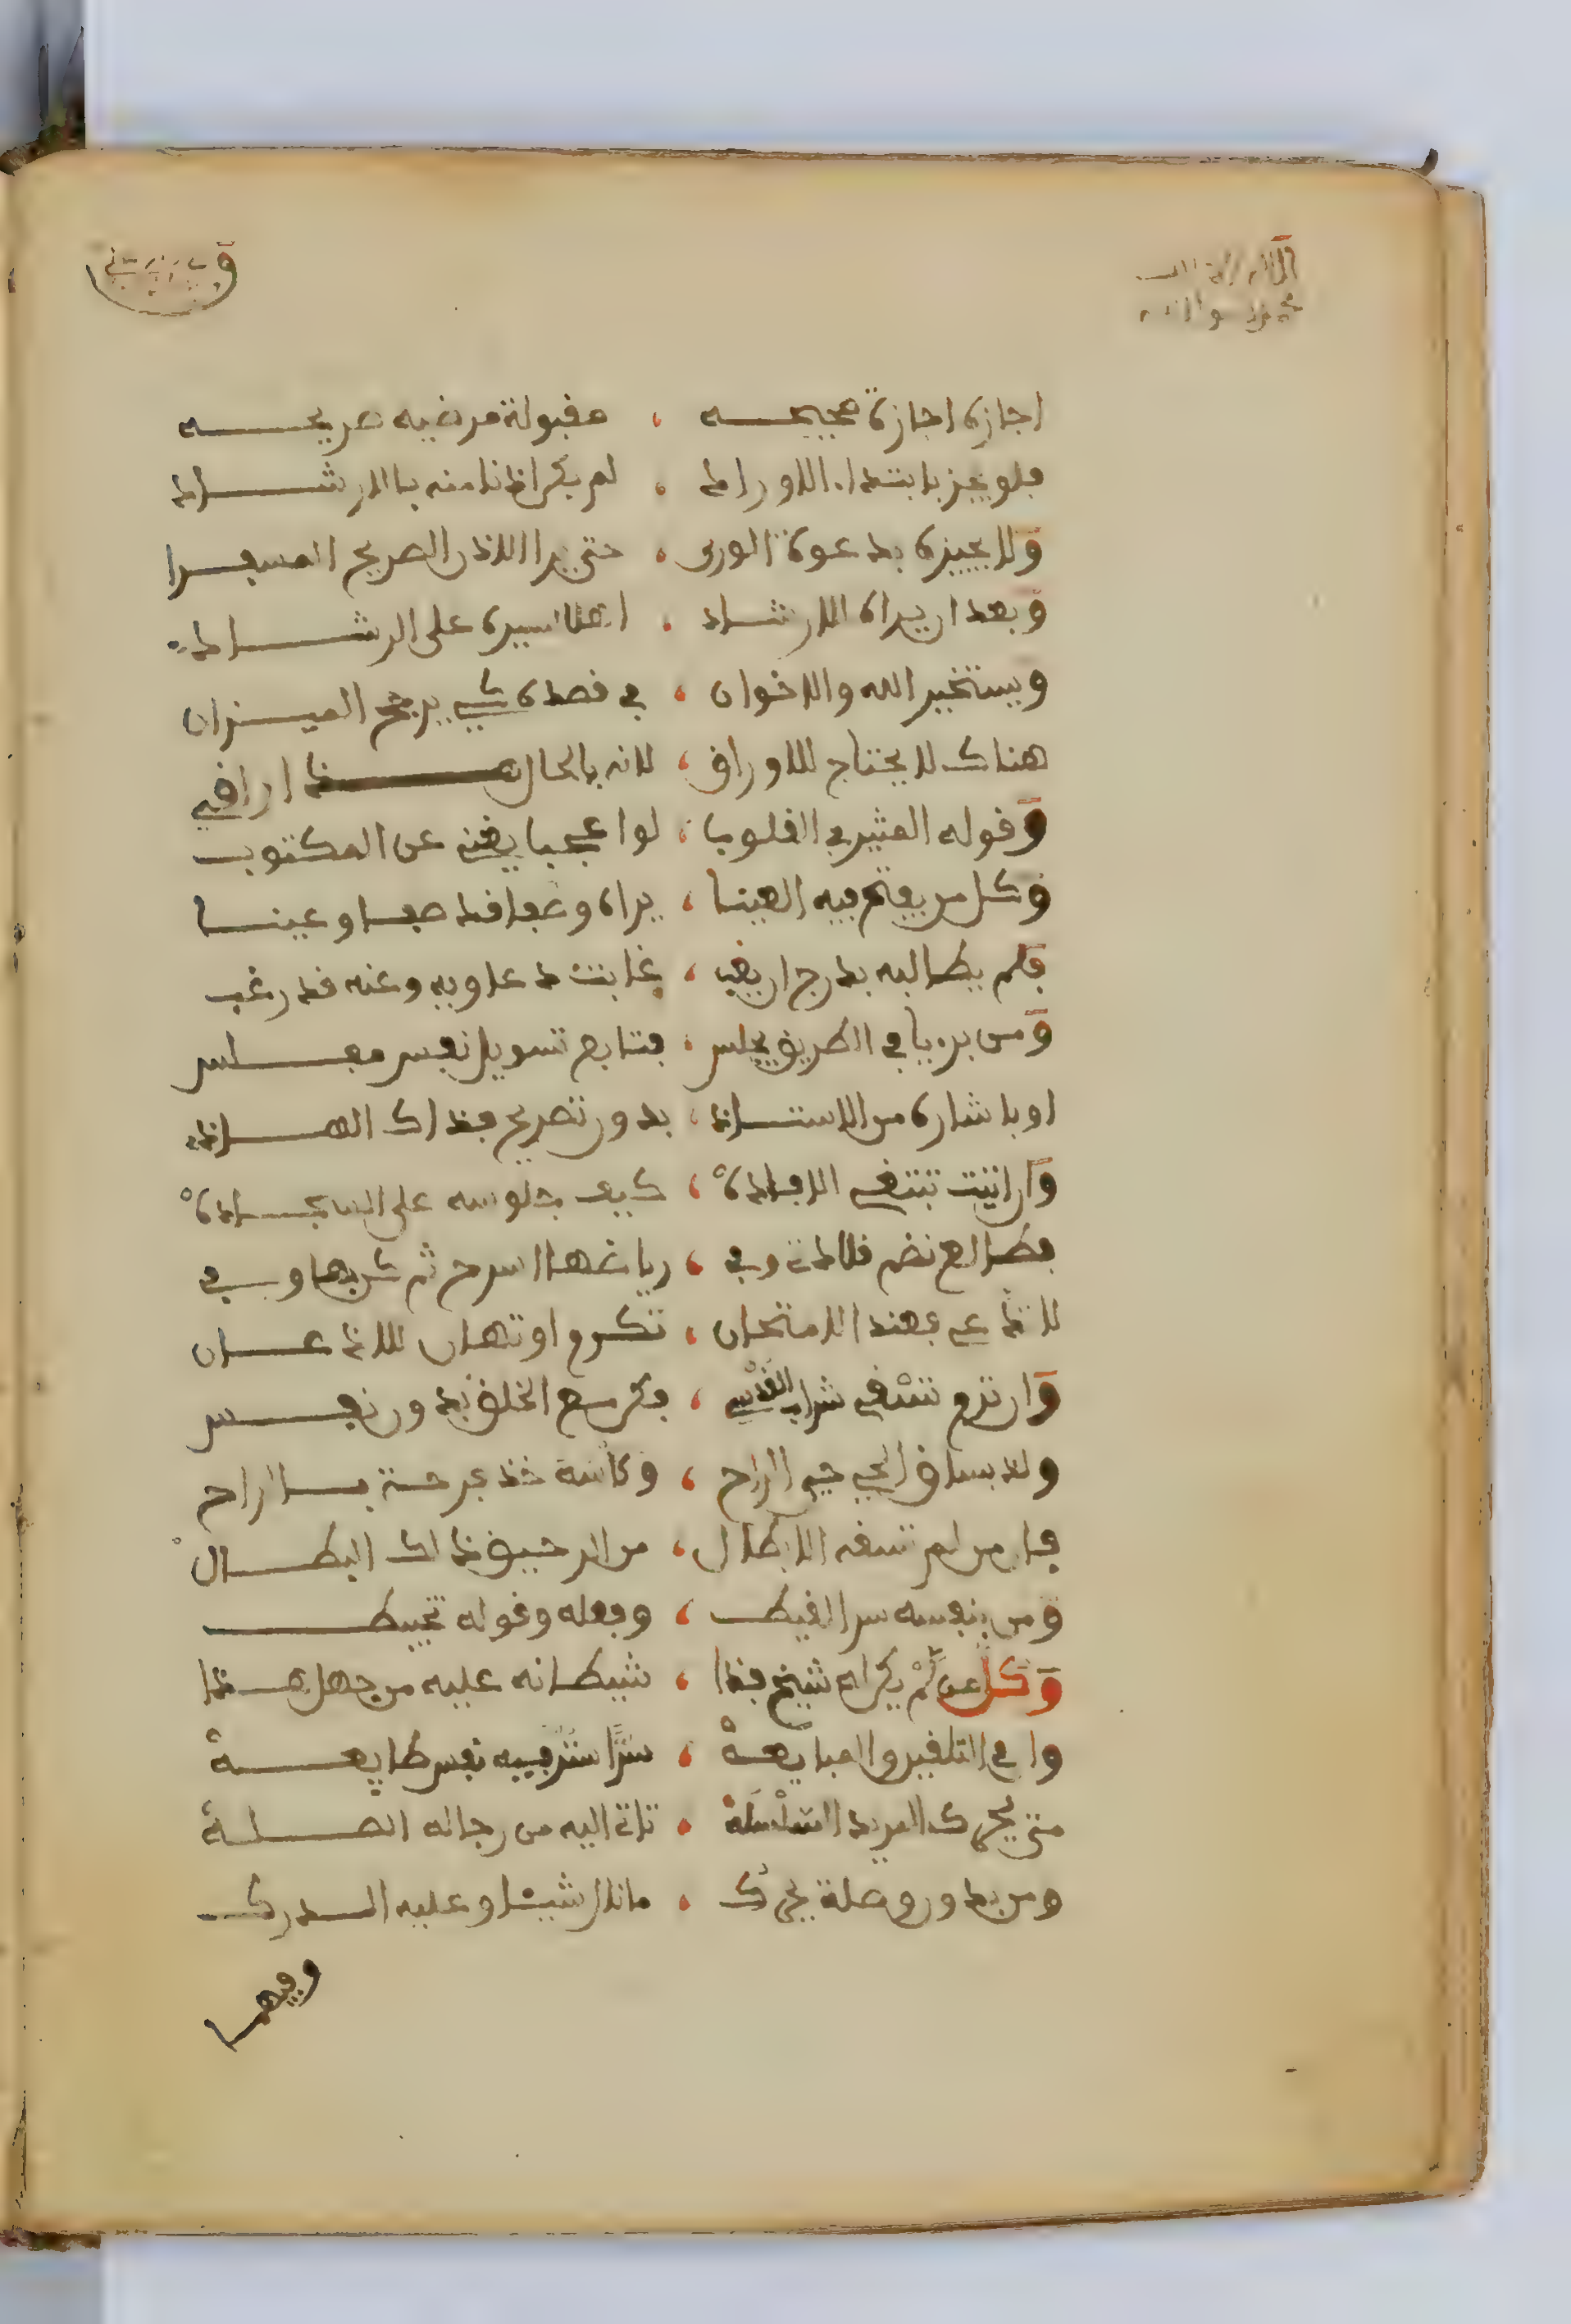 اجازه اجازة صحيحه ، مقبولة مرضيه صريحه
فلو يجز بابتداء الاوراد ، لم يكن اذنا منه بالارشاد
ولا يجيزه بدعوة الورى ، حتى يرا الاذن الصريح المسفرا
وبعد ان يراه للارشاد ، اهلا سيره على الرشاد
ويستخير الله والاخوان ، في قصده كي يرجح الميزان
هناك لا يحتاج للاوراق ، لانه بالحال هذا راقي
وقوله المثير في القلوب ، لواعجا يغني عن المكتوب
وكل من يفتح فيه العينا ، يراه وصفا قد صفا وعينا
فلم يطالبه بدرج ان يغب ،
ومن بزيا في الطريق يجلس ، فتابع تسويل نفس مفلس
او باشارة من الاستاذ ، بدون تصريح فذاك الهاذ
وان اتيت تبتغي الافاده ، كيف جلوسه على السجاده
فطالع نظم قلادة وفي ، رياضها اسرح ثم كن بها وفي
لا تدعي فعند الامتحان ، تكرم او تهان للاذعان
وان ترم تسقى شراب القدس ، فكن مع الخلق بدون نفس
ولا بساق الحي حي الراح ، وكاسه خذ عن حسة بالراح
فان من لم تسقه الابطال ، من الرحيق ذاك البطال
ومن بنفسه سرا لقيط ، وفعله وقوله تخبيط
وكل من لم يكن له شيخ فذا ، شيطانه عليه من جهل هذا
وان في التلقين والمبايعة ، سرا سترقيه نفس طايعة
متى يحرك المريد السلسلة ، تاتي اليه من رجاله الصلة
ومن بدون وصلة يحرك ، ما نال شيئا وعليه الدرك
وفيهما